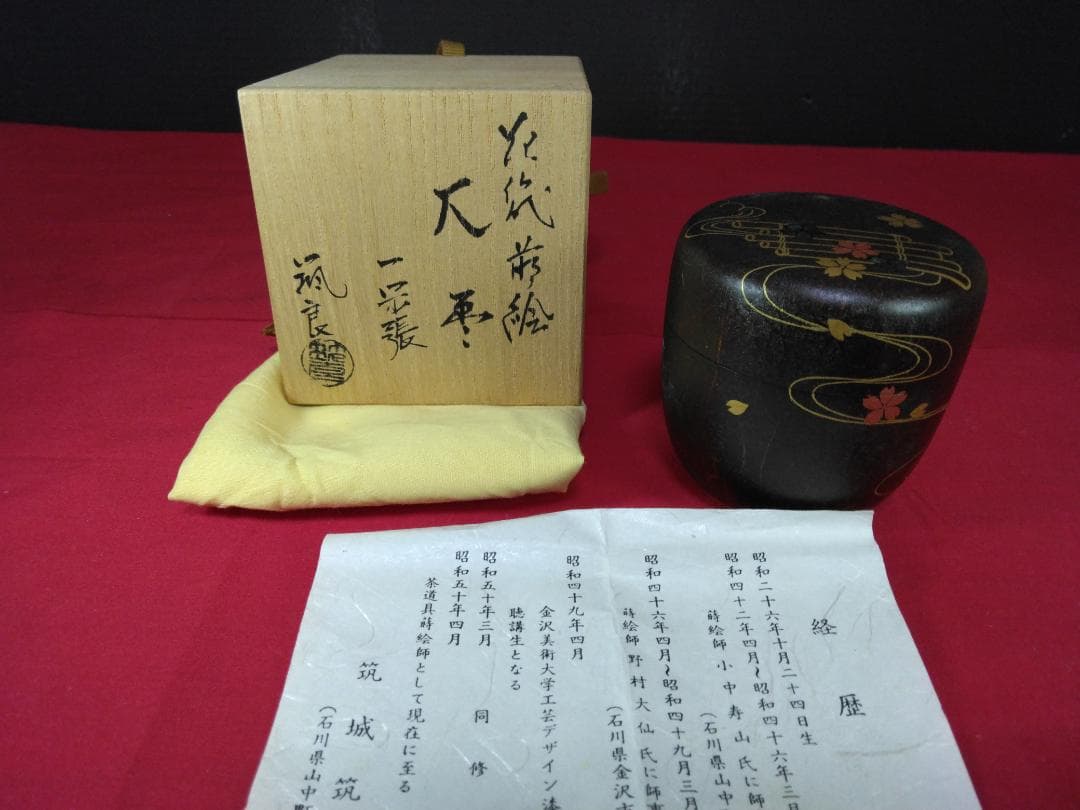 花筏蒔絵
大棗
一閑張
筑良
経歴
昭和二十六年十月二十四日生
昭和四十二年四月〜昭和四十六年三月
蒔絵師 小中寿山氏に師
(石川県山中
昭和四十六年四月〜昭和四十九年三月
蒔絵師 野村大仙氏に師事
(石川県金沢市
昭和四十九年四月
金沢美術大学工芸デザイン漆
聴講生となる
昭和五十年三月 同 修
昭和五十年四月
茶道具蒔絵師として現在に至る
筑城筑
(石川県山中町